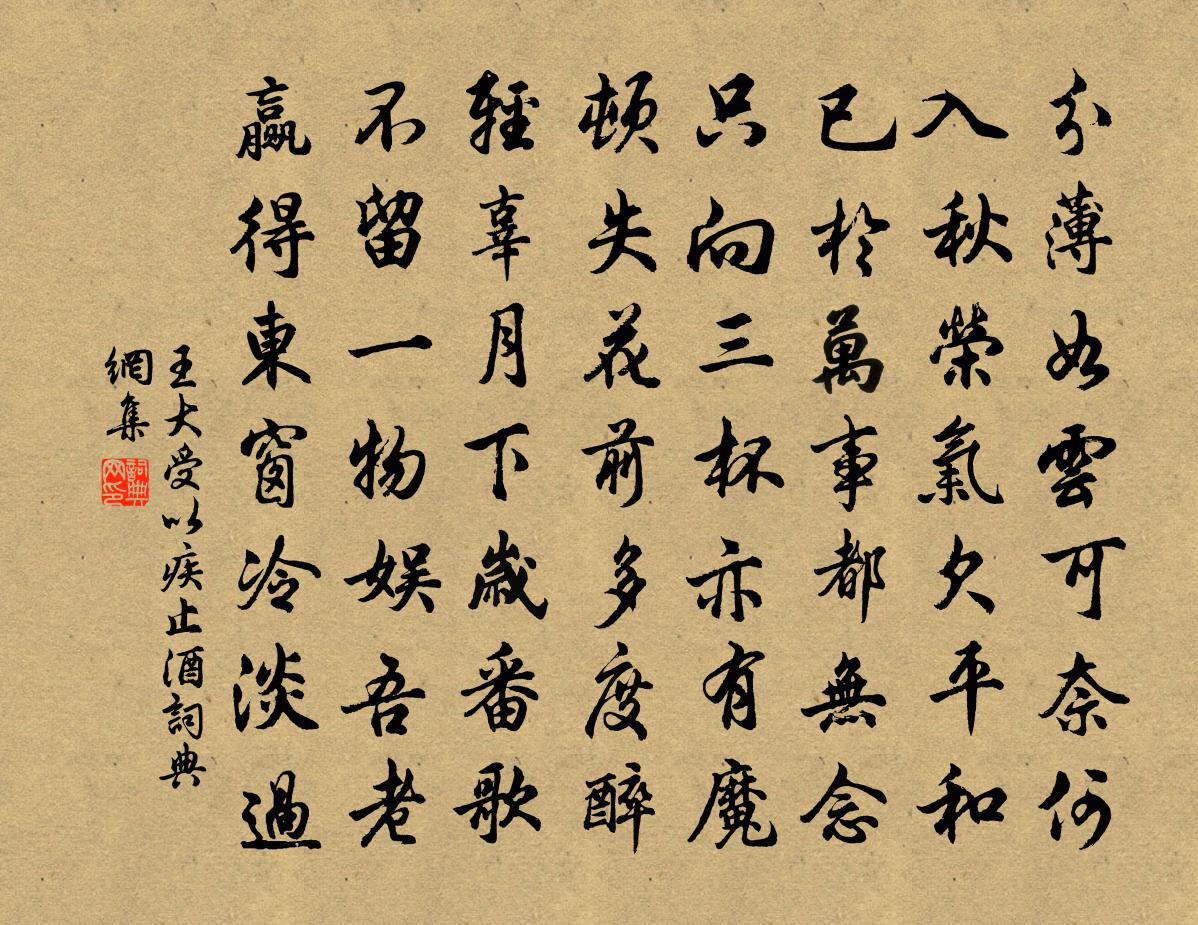 分薄如雲可奈何
入秋榮氣欠平和
已於萬事都無念
只向三杯亦有魔
頓失花前多度醉
輕辜月下幾番歌
不留一物娛吾老
贏得東窗冷淡過
王大受以疾止酒詞典
網集
詞典
网印